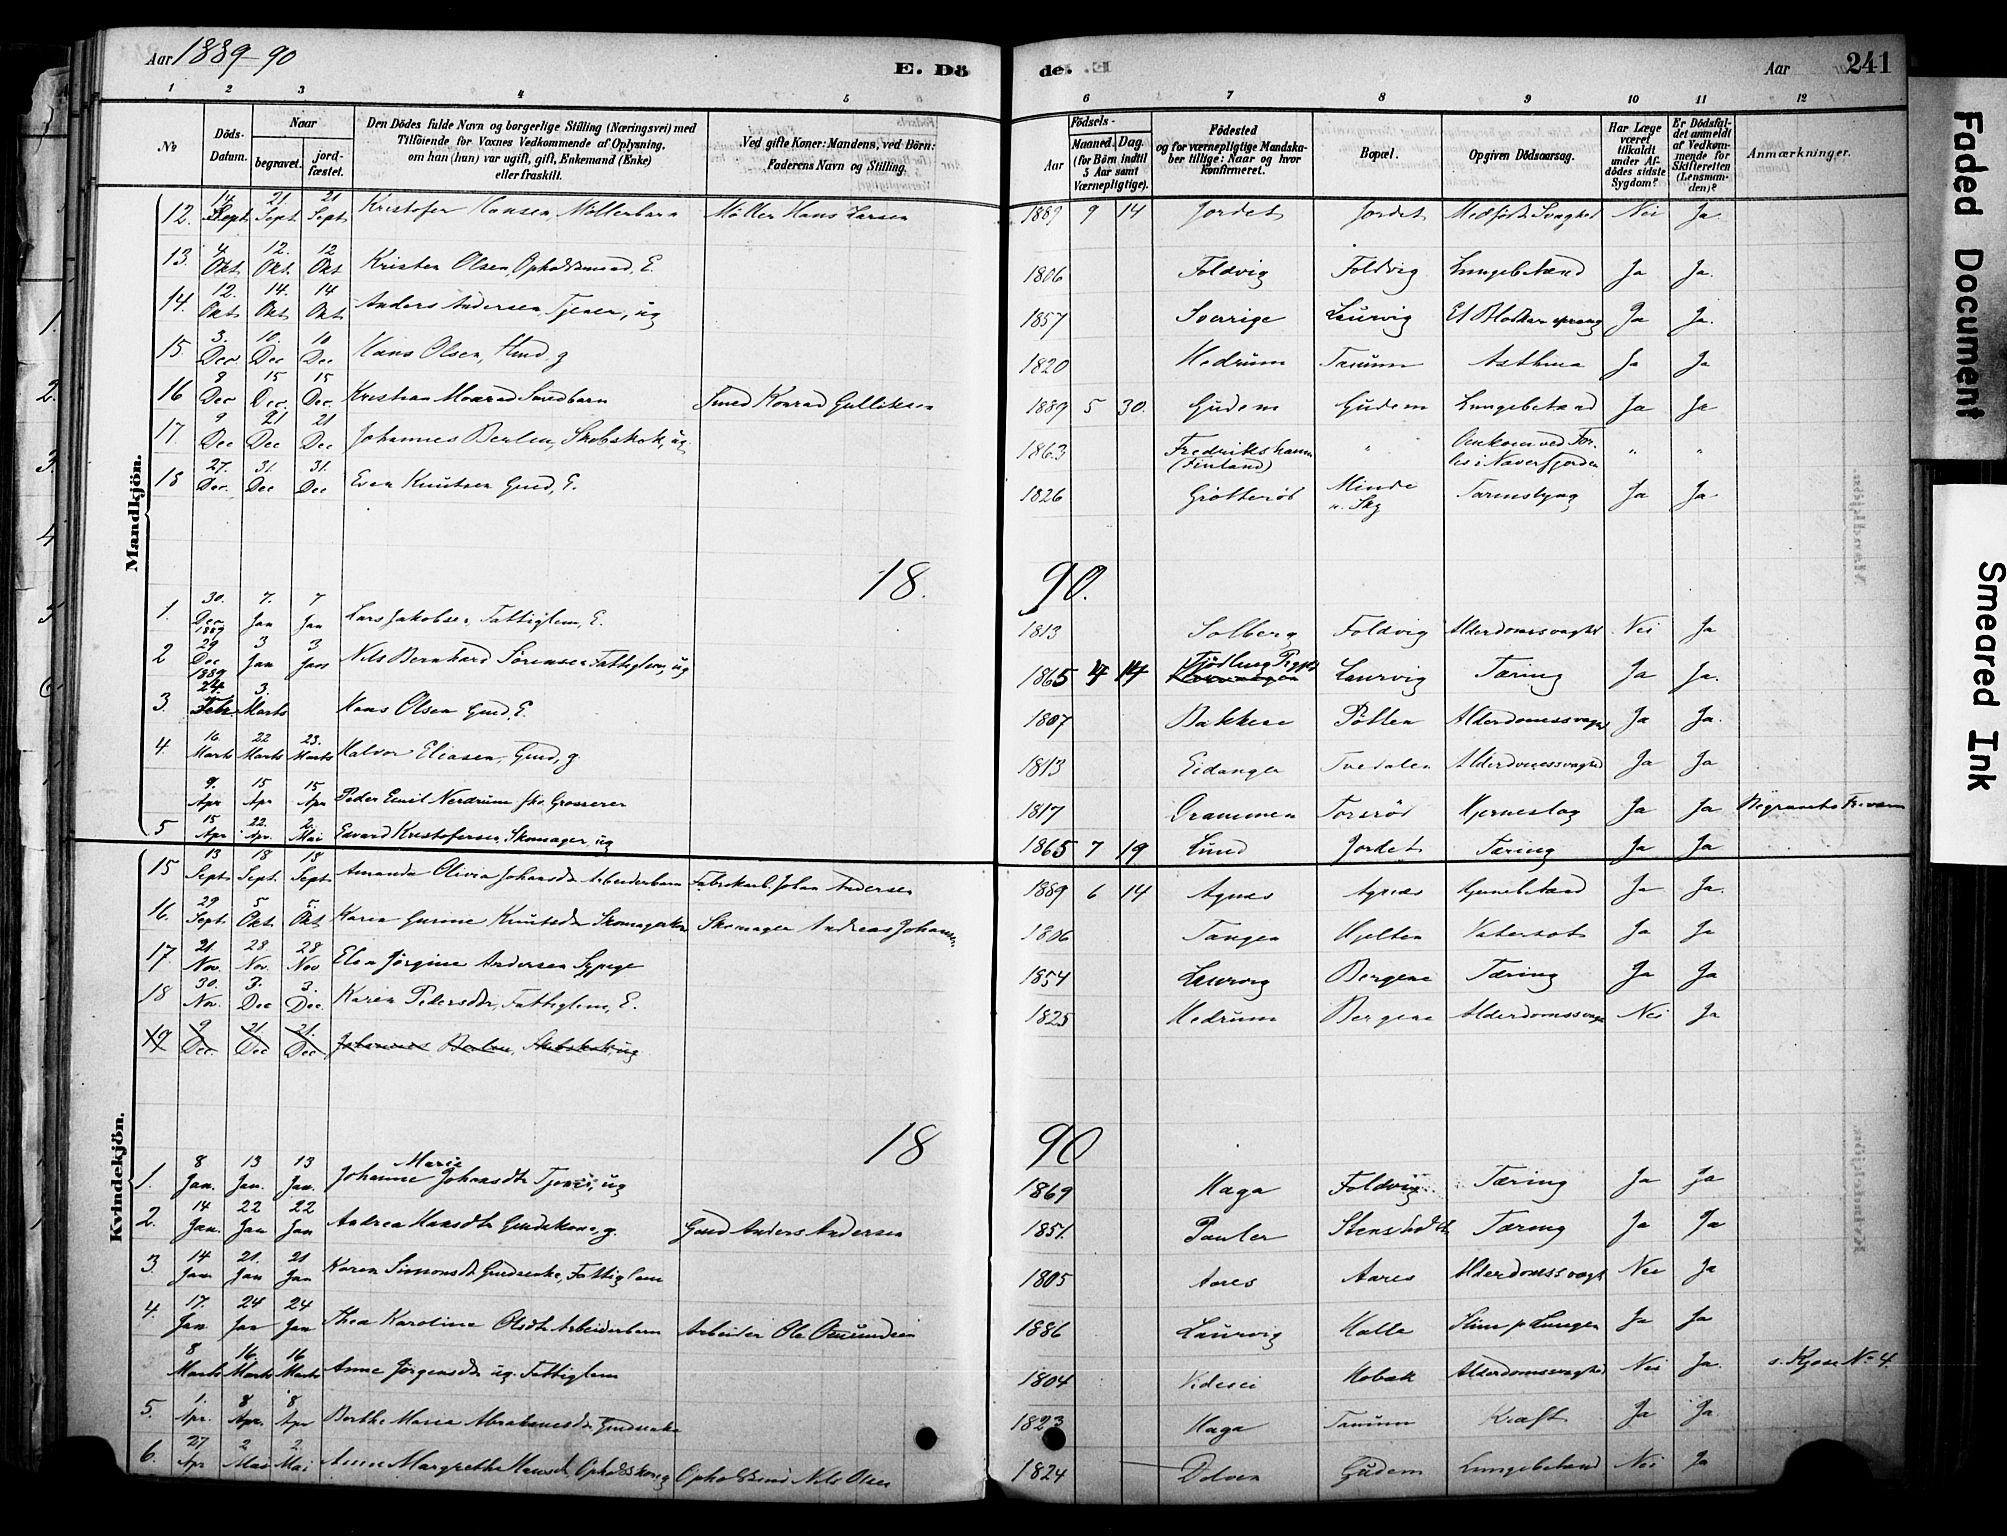 Aar 1889-90
E. Dö
de.
Aar
241
1 2 3 4 5 6 7 8 9 10 11 12
No
Döds-Datum.
Naar
begravet.
jord-fæstet.
Den Dödes fulde Navn og borgerlige Stilling (Næringsvei) med
Tilföiende for Voxnes Vedkommende af Oplysning,
om han (hun) var ugift, gift, Enkemand (Enke)
eller fraskilt.
Ved gifte Koner: Mandens, ved Börn:
Faderens Navn og Stilling.
Födsels-
Aar
Maaned. Dag.
(for Börn indtil
5 Aar samt
Værnepligtige).
Födested
og for værnepligtige Mandska-
ber tillige: Naar og hvor
konfirmeret.
Bopæl.
Opgiven Dödsaarsag.
Har Læge
været
tilkaldt
under Af-
dödes sidste
Sygdom?
Er Dödsfal-
det anmeldt
af Vedkom-
mende for
Skifteretten
(Lensman-
den)?
Anmærkninger.
Mandkjön.
12. 14. Sept. 21. Sept. 21 Sept. Kristofer Hansen Möllerbarn Møller Hans Larsen 1889 9 14 Jordet Jordet Medfödt Svaghed Nei Ja
13. 4. Okt. 12. Okt. 12 Okt. Krister Olsen, Opholdsmand, E. 1806 Foldvig Foldvig Lungebetænd Ja Ja.
14. 12. Okt. 14. Okt. 14 Okt. Anders Andersen Tjener, ug 1857 Sverrige Laurvig Et Blodkar sprang Ja Ja.
15. 3. Dec 10. Dec 10 Dec Hans Olsen, Gmd, g 1820 Hedrum Tanum Asthma Ja Ja
16 8 Dec 15 Dec. 15 Dec. Kristian Konrad Smedbarn Smed Konrad Gulliksen 1889 5 30. Gudem Gudem Lungebetænd Ja Ja
17 9 Dec 21 Dec 21 Dec Johannes Berlin, Skibskok, ug. 1863 Fredrikshamn (Finland) " Omkom ved For-lis i Naverfjorden " "
18 27. Dec. 31. Dec 31. Dec Even Knutsen Gmd, E. 1826 Grötteröd Minde u. Skg Tarmslyng Ja Ja
18. 90.
1. 30. Dec 1889 7. Jan 7 Jan Lars Jakobsen, Fattiglem, E. 1813 Solberg Foldvig Alderdomssvaghed Nei Ja
2 29 Dec 1889 3 Jan 3. Jan Nils Bernhard Sörensen Fattiglem, ug 1865 4 14 Tjödling Laurvig Tæring Ja Ja.
3. 24. Feb 3. Marts Hans Olsen Gmd, E. 1807 Bakkene Pötten Alderdomssvaghed Ja Ja.
4. 16. Marts 22 Marts 23. Marts Halvor Eliasen, Gmd, g 1813 Eidanger Tvedalen Alderdomssvaghed Ja Ja
9. Apr 15 Apr 15 Apr Peder Emil Nerdrum fhv. Grosserer 1817 Drammen Torsröd Hjerneslag Ja Ja
5 15 Apr 22. Apr. 2. Mai Edvard Kristofersen, Skomager, ug 1865 7 19 Lund Jordet Tæring Ja Ja
Kvindekjön.
15 13 Sept. 18 Sept. 18 Sept. Amanda Olivia Johansdtr Arbeiderbarn Fabrikarb. Johan Andersen 1889 6 14 Agnes Agnæs Hjernebetænd Ja Ja.
16. 29 Sept. 5 Okt. 5. Okt Karen Gurine Knutsdtr Skomagerkone Skomager Andreas Johansen 1806 Tangen Hjelten Vatersot Ja Ja
17. 21. Nov. 28. Nov. 28 Nov Elen Jörgine Andersen Sypige 1854 Laurvig Bergene Tæring Ja Ja
18 30. Nov. 3. Dec 3. Dec. Karen Pedersdtr, Fattiglem, E. 1825 Hedrum Bergene Alderdomssvagh Nei Ja
19 9 Dec. 21. Dec 21. Dec Johannes Berlin, Skibskok, ug
18 90
1. 8 Jan. 13 Jan. 13 Jan. Johanne Marie Johansdtr Tjener, ug 1869 Haga Foldvig Tæring Ja Ja
2. 14 Jan. 22 Jan 22 Jan Andrea Hansdtr Gmdskone g. Gmd Anders Andersen 1851. Pauler Stensholdt Tæring Ja Ja
3. 14 Jan 21. Jan 21 Jan Karen Simonsdtr Gmdsenke, Fattiglem 1805 Aares Aares Alderdomssvagh Nei Ja
4. 17. Jan 24 Jan 24 Jan Thea Karoline Olsdtr Arbeiderbarn Arbeider Ole Osmundsen 1886 Laurvig Halle Slim p Lungen Ja Ja
8 Marts 16. Marts 16 Marts Anne Jörgensdtr ug. Fattiglem 1804 Hobæk Alderdomssvaghed Nei Ja. s. Kjose No 4.
5. 1. Apr. 8 Apr. 8 Apr Berthe Maria Abrahamsdtr Gmdsenke 1823 Haga Tanum Kræft Ja Ja.
6. 27 Apr 2 Mai 2. Mai Anne Margrethe Hansdtr, Opholdskone g Opholdsmd Nils Olsen 1824 Dolven Gudem Lungebetænd Nei Ja
Faded Document
Smeared Ink